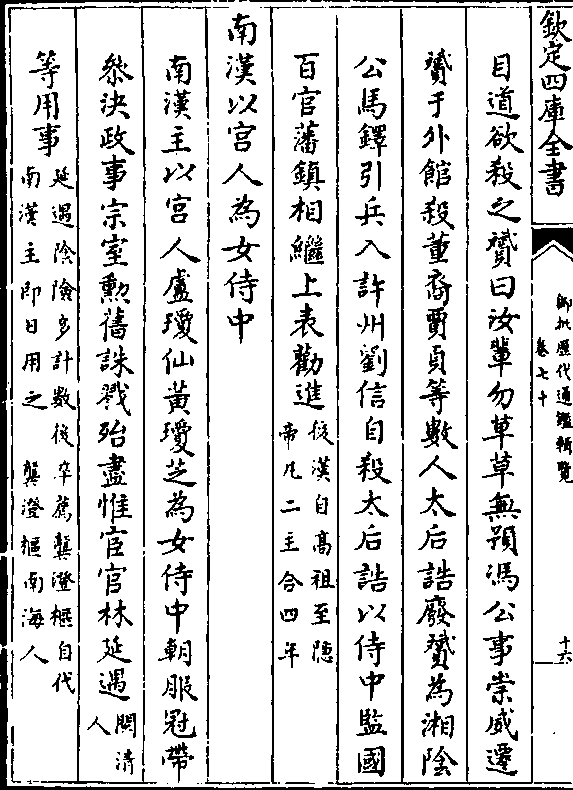 欽定四庫全書
御批歷代通鑑輯覽
卷七十
十六
目道欲殺之贇曰汝輩勿草草無預馮公事崇威遷
贇于外館殺董裔賈貞等數人太后誥廢贇為湘陰
公馬鐸引兵入許州劉信自殺太后誥以侍中監國
百官藩鎮相繼上表勸進
後漢自高祖至隱
帝凡二主合四年
南漢以宮人為女侍中
南漢主以宮人盧瓊仙黃瓊芝為女侍中朝服冠帶
叅決政事宗室勲舊誅戮殆盡惟宦官林延遇
閩清
人
等用事
延遇陰險多計數後卒薦龔澄樞自代
南漢主即日用之 龔澄樞南海人